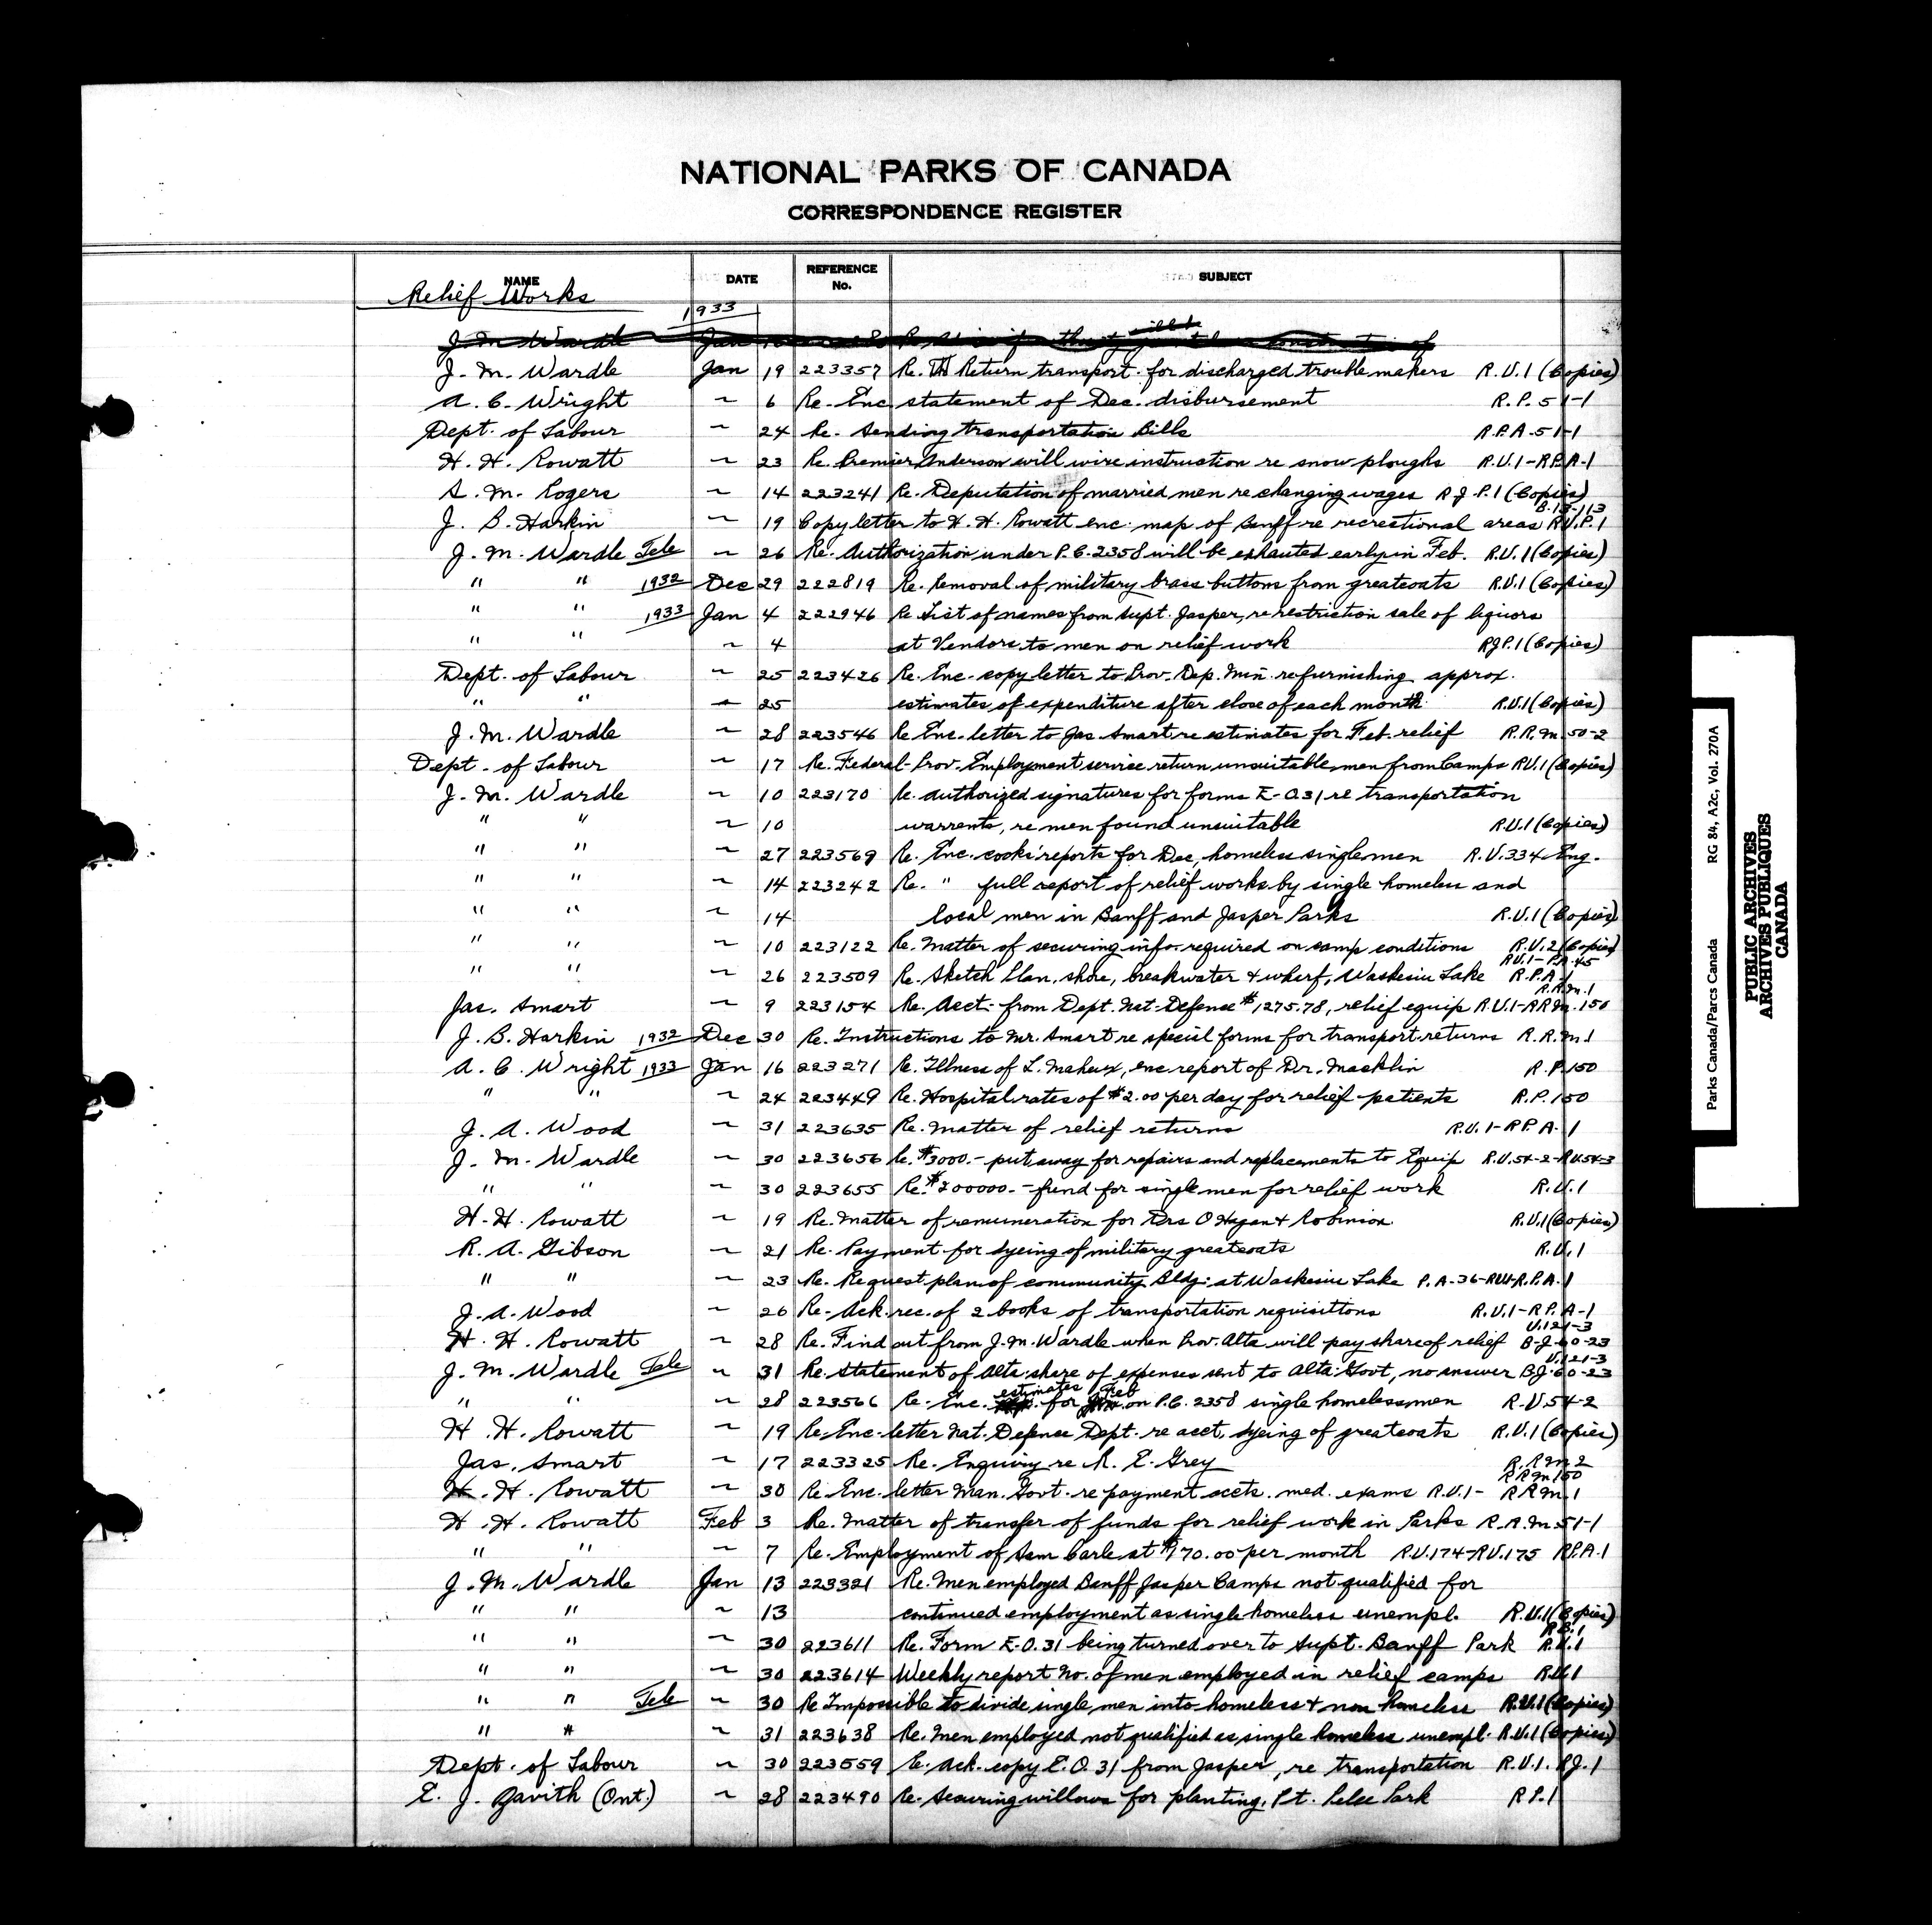 NATIONAL PARKS OF CANADA
CORRESPONDENCE REGISTER
NAME DATE REFERENCE No. SUBJECT
Relief Works
1933
J. M. Wardle Jan
J. M. Wardle Jan 19 223357 Re. Return transport. for discharged trouble makers R.U.1 (Copies)
A. C. Wright ~ 6 Re. Enc. statement of Dec. disbursement R.P.51-1
Dept. of Labour ~ 24 Re. Sending transportation Bills R.P.A-51-1
H. H. Rowatt ~ 23 Re. Premier Anderson will wire instruction re snow ploughs R.U.1-R.P.A-1
S. M. Rogers ~ 14 223241 Re. Deputation of married men re changing wages R.J.P.1 (Copies)
B.13-113
J. B. Harkin ~ 19 Copy letter to H. H. Rowatt enc. map of Banff re recreational areas R.U.P.1
J. M. Wardle Tele ~ 26 Re. Authorization under P.C. 2358 will be exhausted early in Feb. R.U.1 (Copies)
" " 1932 Dec 29 222819 Re. Removal of military brass buttons from greatcoats R.U.1 (Copies)
" " 1933 Jan 4 222946 Re List of names from Supt. Jasper, re restriction sale of liquors
" " ~ 4 at Vendors to men on relief work R.J.P.1 (Copies)
Dept. of Labour ~ 25 223426 Re. Enc. copy letter to Prov. Dep. Min. re furnishing approx.
" " ~ 25 estimates of expenditure after close of each month R.U.1 (Copies)
J. M. Wardle ~ 28 223546 Re Enc. letter to Jas. Smart re estimates for Feb. relief R.R.M.50-2
Dept. of Labour ~ 17 Re. Federal-Prov. Employment service return unsuitable men from Camps R.U.1 (Copies)
J. M. Wardle ~ 10 223170 Re. authorized signatures for forms E-O.31 re transportation
" " ~ 10 warrents, re men found unsuitable R.U.1 (Copies)
" " ~ 27 223569 Re. Enc. cooks' reports for Dec, homeless single men R.U.334 Eng.
" " ~ 14 223242 Re. " full report of relief works by single homeless and
" " ~ 14 local men in Banff and Jasper Parks R.U.1 (Copies)
" " ~ 10 223122 Re. Matter of securing info. required on camp conditions R.U.2 (Copies)
R.U.1-P.A.45
" " ~ 26 223509 Re. Sketch Plan, shore, breakwater & wharf, Waskesiu Lake R.P.A-1
R.R.M.1
Jas. Smart ~ 9 223154 Re. Acct. from Dept. Nat. Defense $1275.78, relief equip R.U.1-R.R.M.150
J. B. Harkin 1932 Dec 30 Re. Instructions to Mr. Smart re special forms for transport. returns R.R.M.1
A. C. Wright 1933 Jan 16 223271 Re. Illness of L. Maheux, enc report of Dr. Macklin R.P.150
" " ~ 24 223449 Re. Hospital rates of $2.00 per day for relief patients R.P.150
J. A. Wood ~ 31 223635 Re. Matter of relief returns R.U.1-R.P.A-1
J. M. Wardle ~ 30 223656 Re. $3000.- put away for repairs and replacements to Equip R.U.54-2-R.U.54-3
" " ~ 30 223655 Re. $200000.- fund for single men for relief work R.U.1
H. H. Rowatt ~ 19 Re. Matter of remuneration for Drs O'Hagan & Robinson R.U.1 (Copies)
R. A. Gibson ~ 21 Re. Payment for dyeing of military greatcoats R.U.1
" " ~ 23 Re. Request plan of community Bldg. at Waskesiu Lake P.A-36-R.U.1-R.P.A.1
J. A. Wood ~ 26 Re. Ack. rec. of 2 books of transportation requisitions R.U.1-R.P.A-1
U.121-3
H. H. Rowatt ~ 28 Re. Find out from J. M. Wardle when Prov. Alta will pay share of relief B-J-60-23
U.121-3
J. M. Wardle Tele ~ 31 Re statement of Alta share of expenses sent to Alta Govt, no answer B.J-60-23
" " ~ 28 223566 Re. Enc. estimates for Feb on P.C. 2358 single homeless men R.U.54-2
H. H. Rowatt ~ 19 Re. Enc. letter Nat. Defence Dept. re acct. dyeing of greatcoats R.U.1 (Copies)
Jas. Smart ~ 17 223325 Re. Enquiry re R. E. Grey R.R.M.2
R.R.M.150
H. H. Rowatt ~ 30 Re Enc. letter Man. Govt. re payment accts. med. exams R.U.1- R.R.M.1
H. H. Rowatt Feb 3 Re. Matter of transfer of funds for relief work in Parks R.R.M.51-1
" " ~ 7 Re. Employment of Sam Carle at $170.00 per month R.U.174-R.U.175 R.P.A-1
J. M. Wardle Jan 13 223321 Re. Men employed Banff Jasper Camps not qualified for
" " ~ 13 continued employment as single homeless unempl. R.U.1 (Copies)
R.B.1
" " ~ 30 223611 Re. Form E.O.31 being turned over to Supt. Banff Park R.U.1
" " ~ 30 223614 Weekly report No. of men employed in relief camps R.U.1
" " Tele ~ 30 Re Impossible to divide single men into homeless & non homeless R.U.1 (Copies)
" " ~ 31 223638 Re. Men employed not qualified as single homeless unempl. R.U.1 (Copies)
Dept. of Labour ~ 30 223559 Re. Ack. copy E.O.31 from Jasper, re transportation R.U.1. R.J.1
E. J. Zavitz (Ont.) ~ 28 223490 Re. Securing willows for planting, Pt. Pelee Park R P.1
Parks Canada/Parcs Canada RG 84, A2c, Vol. 270A
PUBLIC ARCHIVES
ARCHIVES PUBLIQUES
CANADA